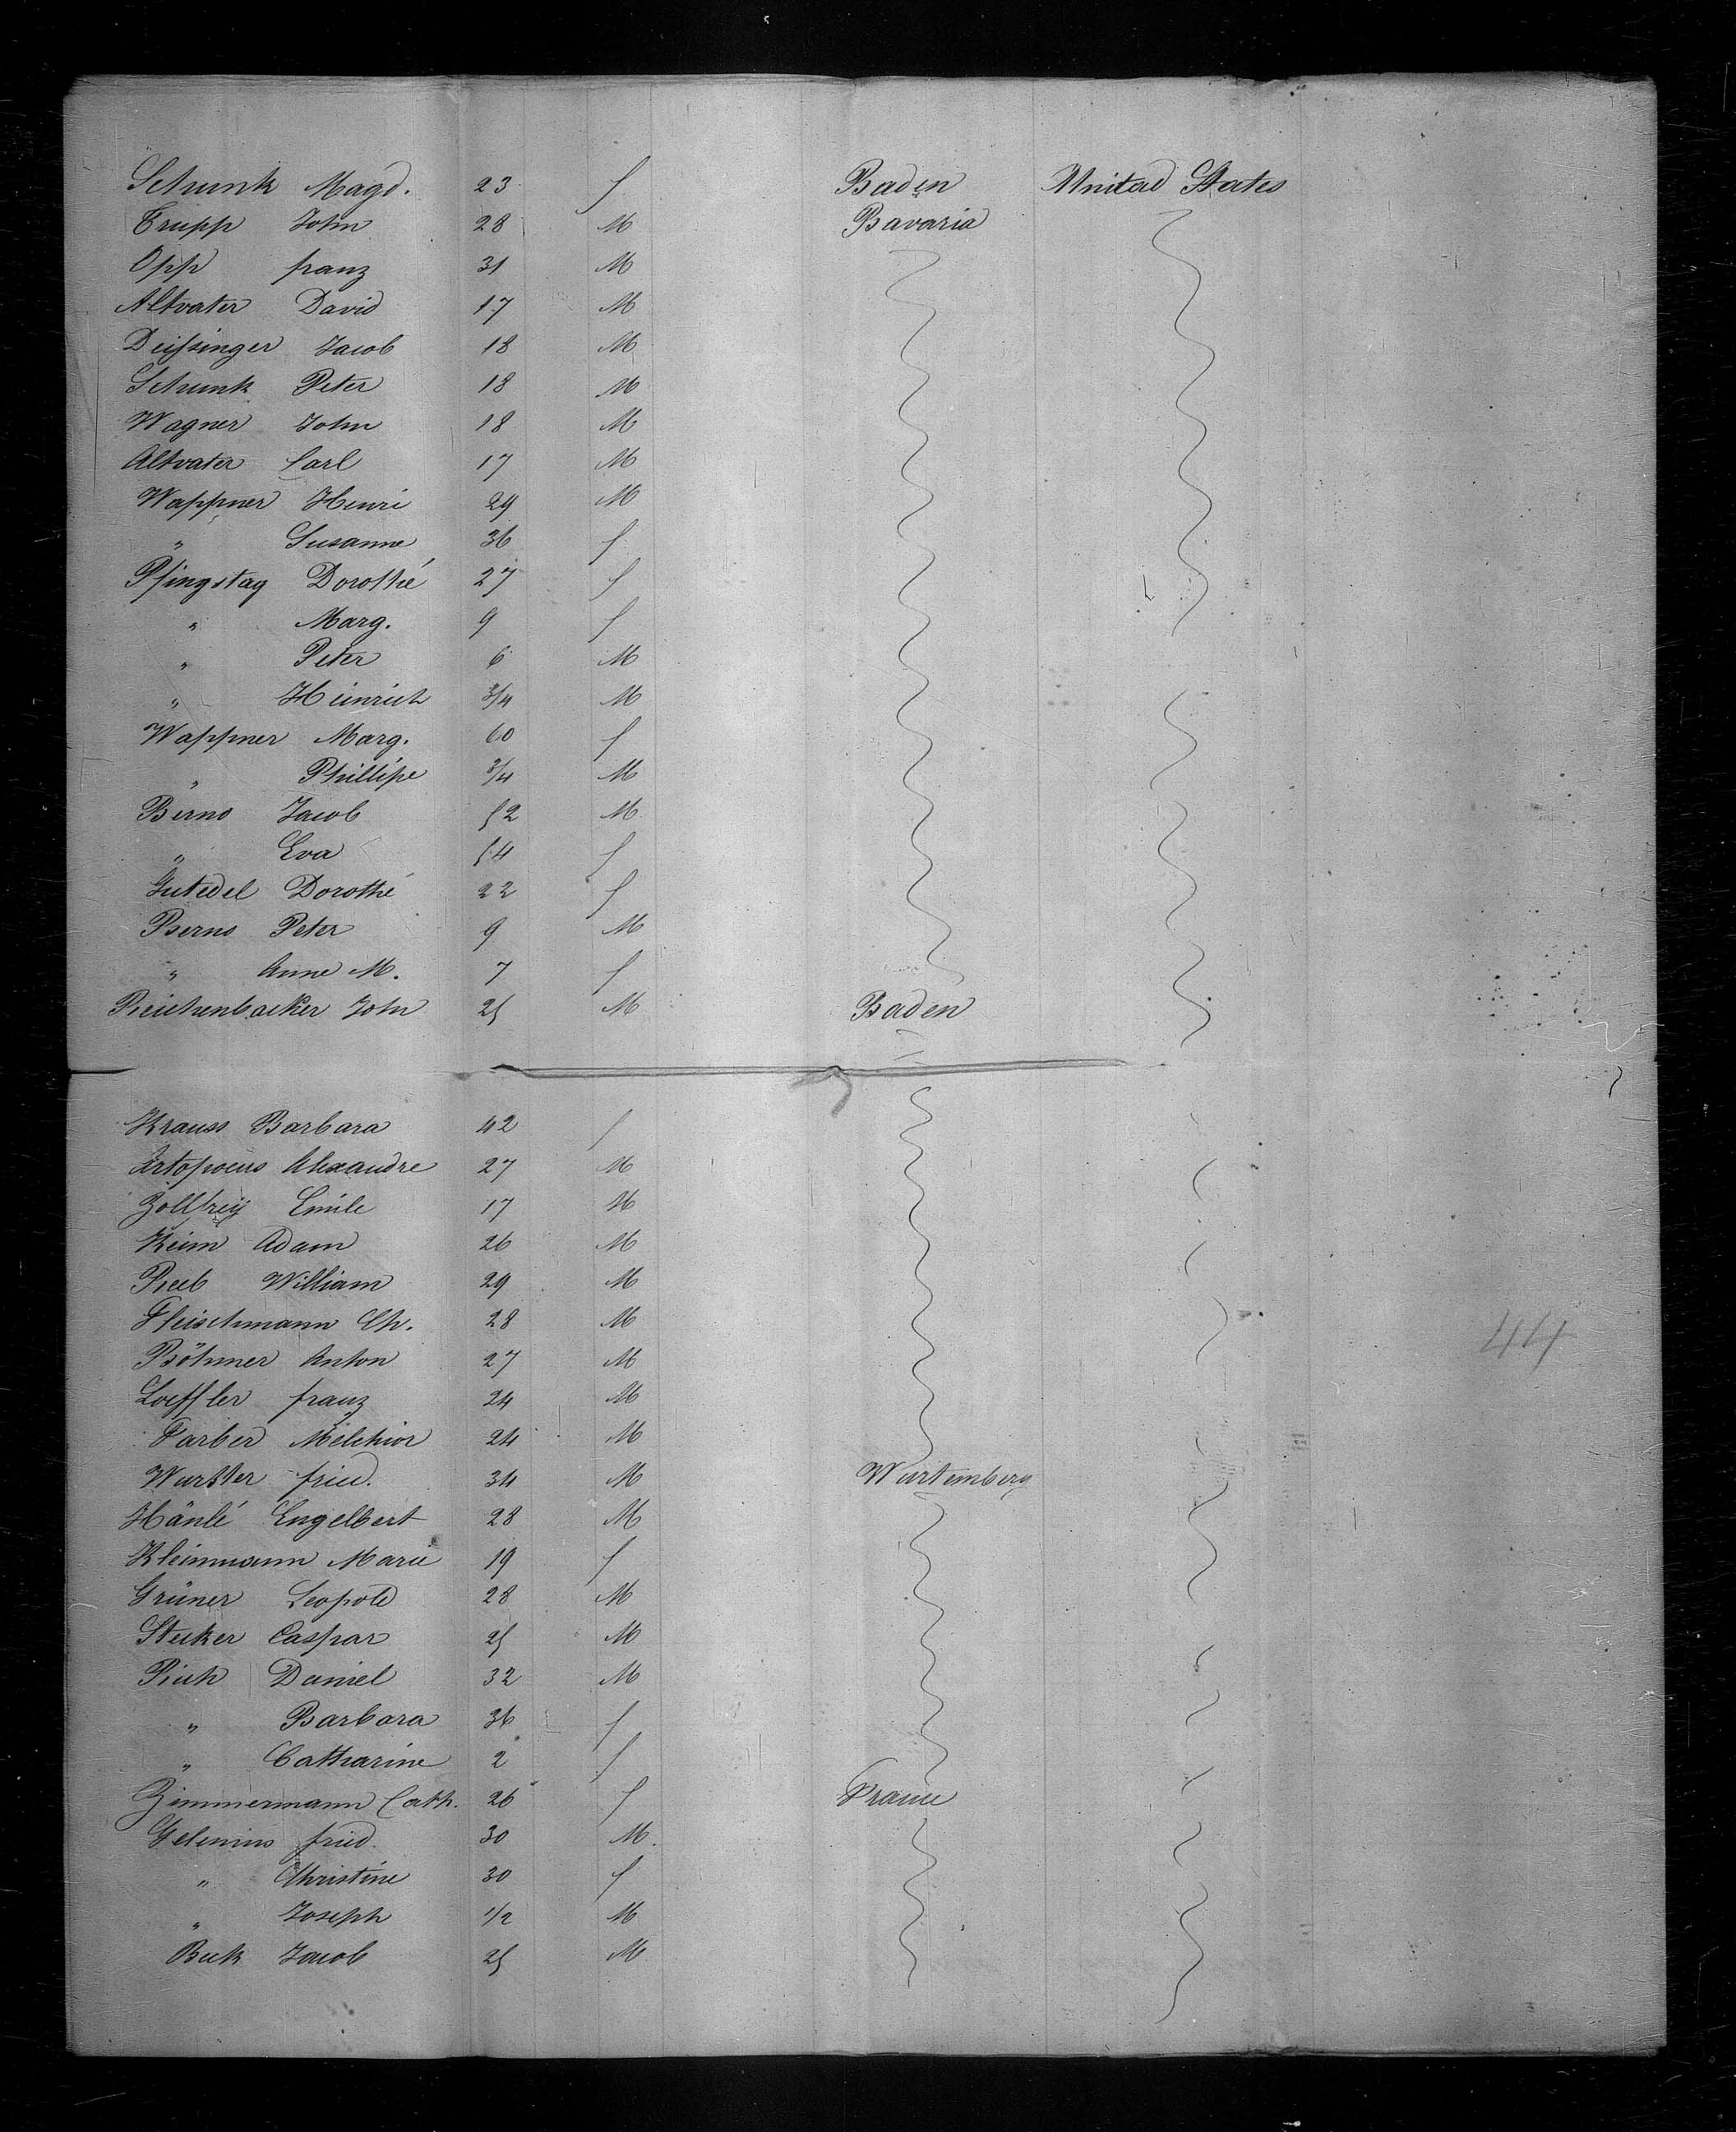 Schunk Magd. 23 f Baden United States
Trupp John 28 M Bavaria
Opp franz 31 M
Altvater David 17 M
Deissinger Jacob 18 M
Schunk Peter 18 M
Wagner John 18 M
Altvater Carl 17 M
Wappner Henri 29 M
" Susanne 36 f
Pfingstag Dorothé 27 f
" Marg. 9 f
" Peter 6 M
" Heinrich 3/4 M
Wappner Marg. 60 f
" Phillipe 3/4 M
Berno Jacob 52 M
" Eva 54 f
Gutedel Dorothé 22 f
Berno Peter 9 M
" Anne M. 7 f
Reichenbacker John 25 M Baden
Krauss Barbara 42 f
Artopoeus Alexandre 27 M
Zollfrey Emile 17 M
Keim Adam 26 M
Rueb William 29 M
Fleischmann Ch. 28 M
Böhmer Anton 27 M
Loeffler franz 24 M
Farber Melchior 24 M
Wurster fried. 34 M Wurtemberg
Hänlé Engelbert 28 M
Kleinmann Marie 19 f
Grüner Leopold 28 M
Stecker Caspar 25 M
Daniel 32 M
" Barbara 36 f
" Catharine 2 f
Zimmermann Cath. 26 f France
Gelenius fried. 30 M.
" Christine 30 f
" Joseph 1/2 M
Beck Jacob 25 M
44